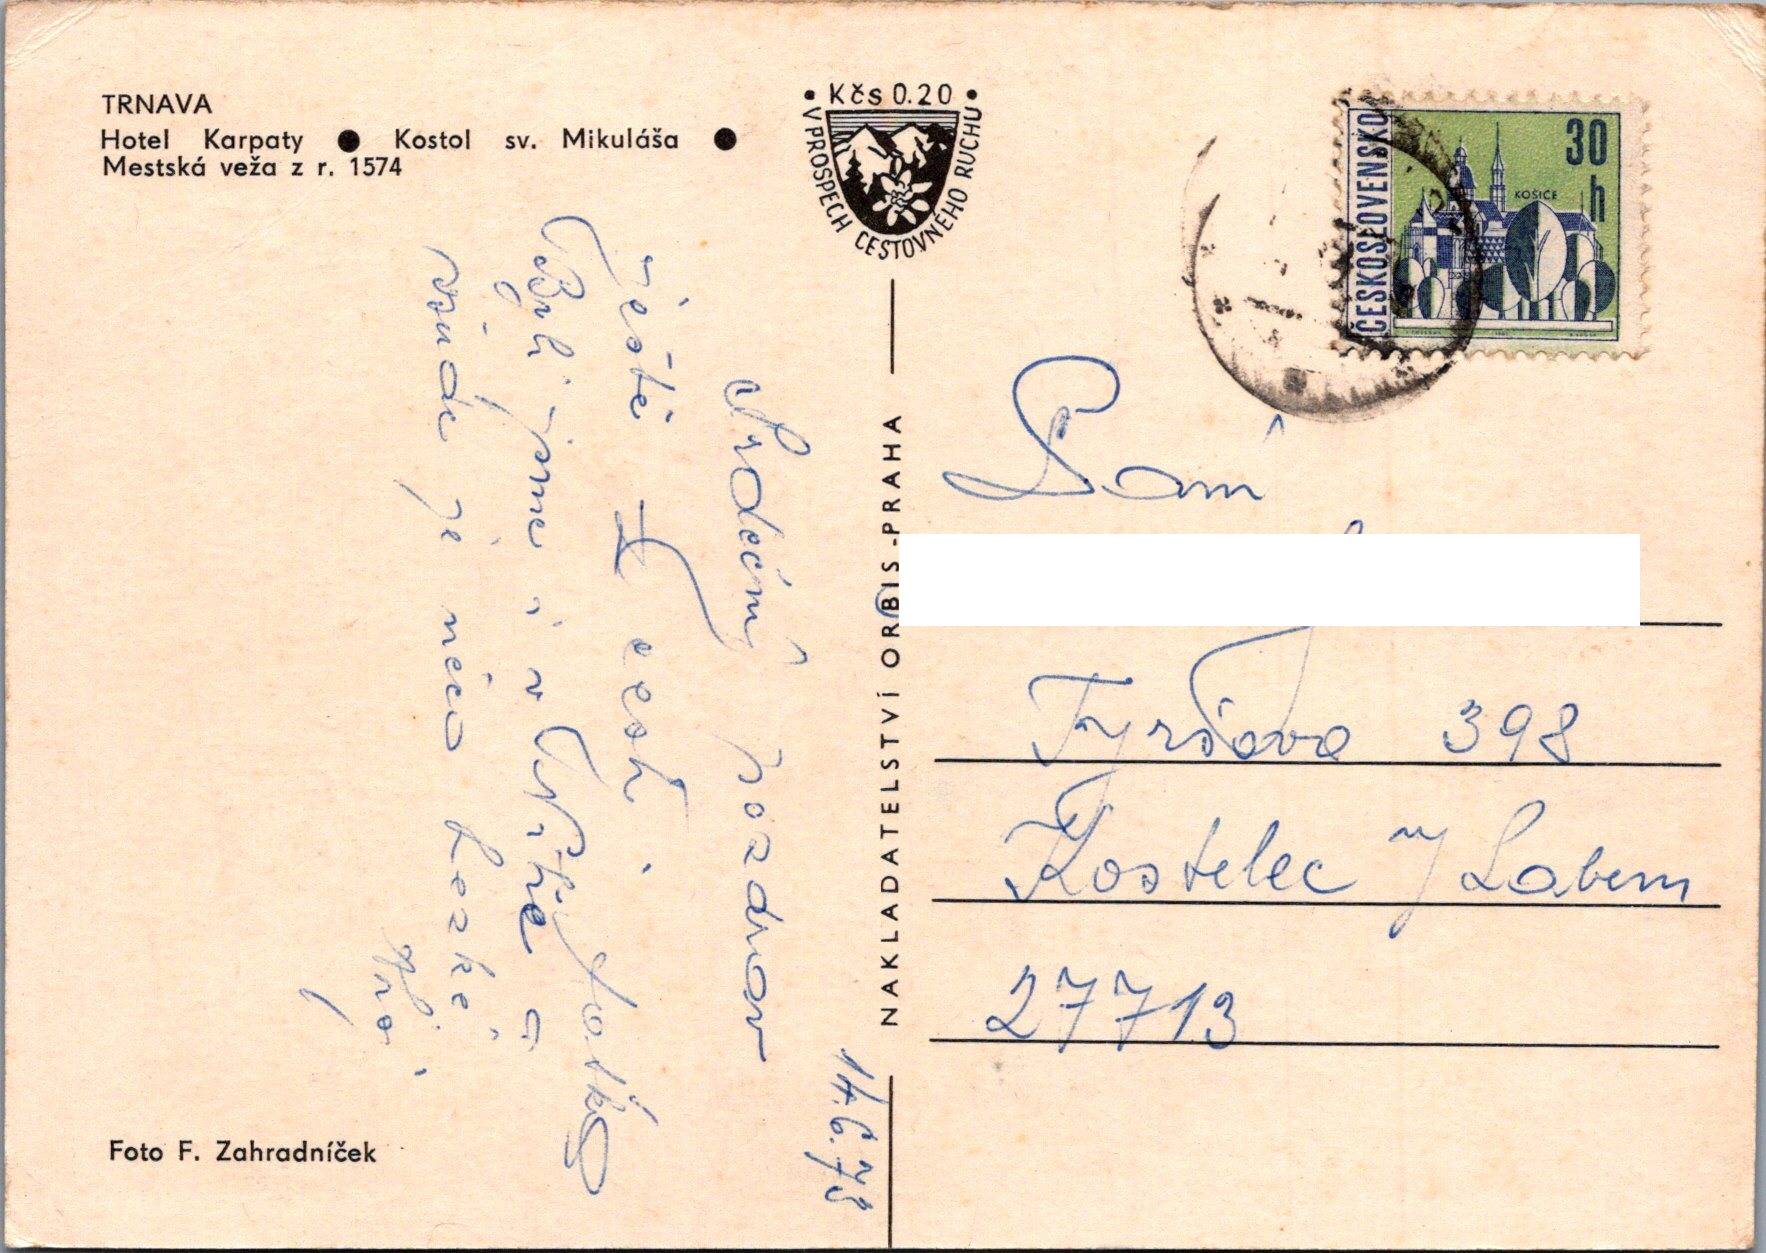 TRNAVA
Hotel Karpaty ● Kostol sv. Mikuláša ●
Mestská veža z r. 1574
• Kčs 0.20 •
V PROSPECH CESTOVNÉHO RUCHU
ČESKOSLOVENSKO
30
h
KOŠICE
14.6.78
Srdečný pozdrav
ještě z cesty.
Byli jsme i v Nitře a
všude je něco hezké
ho.
Foto F. Zahradníček
NAKLADATELSTVÍ ORBIS-PRAHA
Paní
Tyršova 398
Kostelec n/Labem
27713